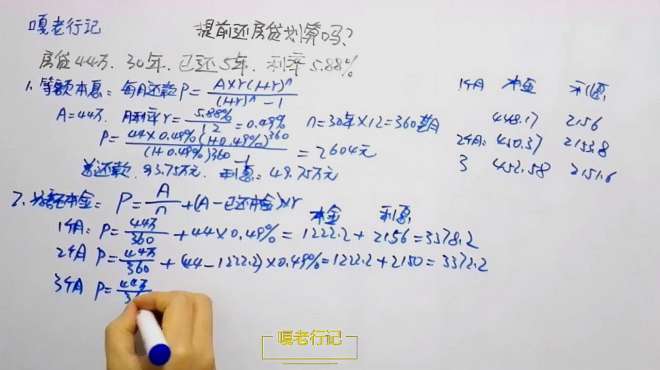 嘎老行记
提前还房贷划算吗?
房贷44万. 30年. 已还5年. 利率5.88%
1. 等额本息: 每月还款P= A×r(1+r)^n / (1+r)^n - 1
1个月 本金 利息
A=44万. 月利率r= 5.88% / 12 = 0.49% n=30年×12=360个月
448.17 2156
P= 44×0.49%(1+0.49%)^360 / (1+0.49%)^360 - 1 = 2604元
2个月: 450.37 2153.8
总还款 93.75万元. 利息: 49.75万元
3 452.58 2151.6
2. 等额本金: P= A/n +(A-已还本金)×r
本金 利息
1个月: P= 44万/360 + 44×0.49% = 1222.2 + 2156 = 3378.2
2个月 P= 44万/360 + (44-1222.2)×0.49% = 1222.2 + 2150 = 3372.2
3个月 P= 44万/3
嘎老行记